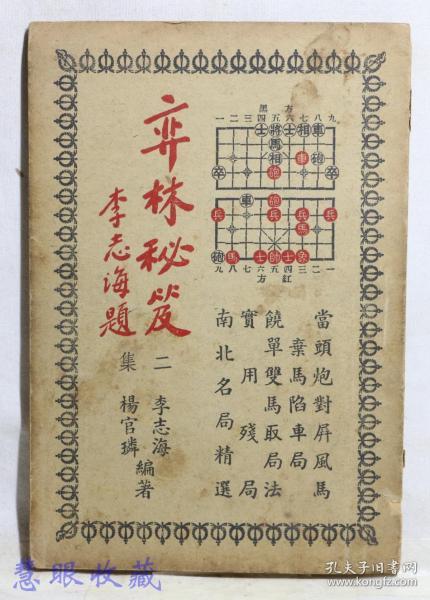 弈林秘笈
李志海題
二集
李志海
楊官璘
編著
黑方
一二三四五六七八九
士將士相車
馬
相車砲
卒炮卒
車炮
兵兵兵兵
馬
砲馬士帥士象
九八七六五四三二一
方紅
當頭炮對屏風馬
棄馬陷車局
饒單雙馬取局法
實用殘局
南北名局精選
慧眼收藏
孔夫子旧书网
www.kongfz.com